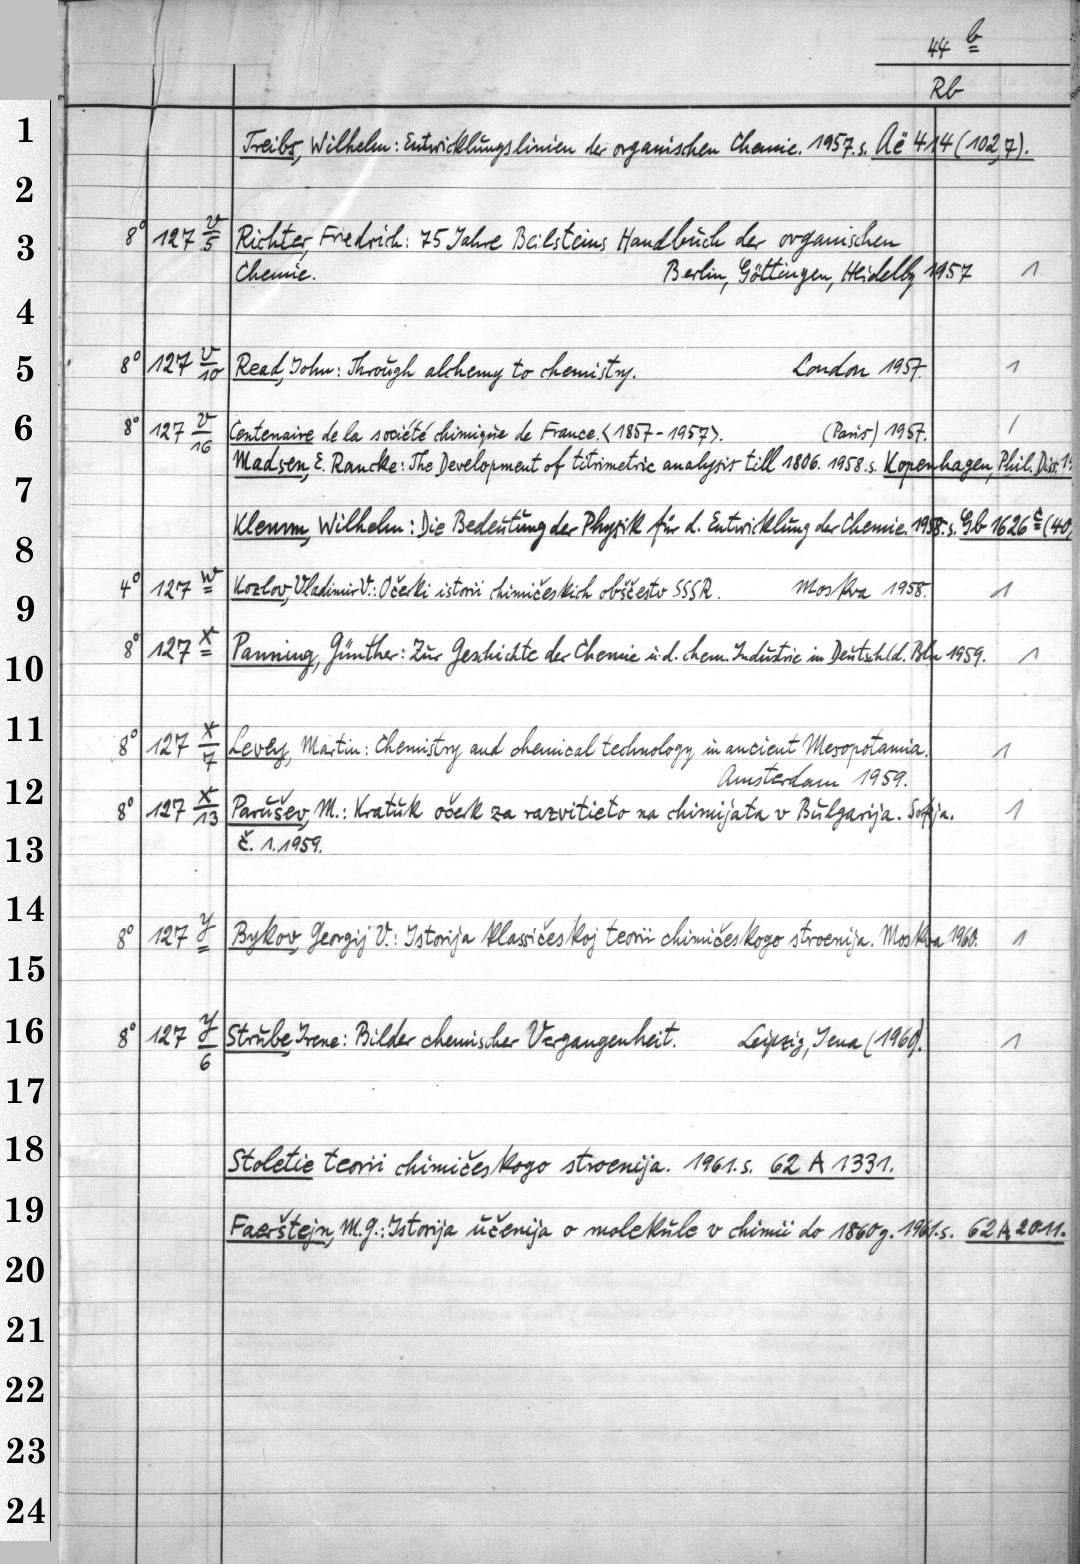 44 b
Rb
1 Treibs, Wilhelm: Entwicklungslinien der organischen Chemie. 1957. s. Aë 414 (102,7).
2
3 8° 127 v/5 Richter, Friedrich: 75 Jahre Beilsteins Handbuch der organischen
Chemie. Berlin, Göttingen, Heidelbg 1957 1
4
5 8° 127 v/10 Read, John: Through alchemy to chemistry. London 1957. 1
6 8° 127 v/16 Centenaire de la société chimique de France. <1857-1957>. (Paris) 1957. 1
Madsen, E. Rancke: The Development of titrimetric analysis till 1806. 1958. s. Kopenhagen, Phil. Diss.
7
8 Klemm, Wilhelm: Die Bedeutung der Physik für d. Entwicklung der Chemie. 1958. s. Gb 1626 c (40,
9 4° 127 w Kozlov, Vladimir V.: Očerki istorii chimičeskich obščestv SSSR. Moskva 1958. 1
10 8° 127 x Panning, Günther: Zur Geschichte der Chemie u. d. chem. Industrie in Deutschld. Bln 1959. 1
11 8° 127 x/7 Levey, Martin: Chemistry and chemical technology in ancient Mesopotamia.
Amsterdam 1959. 1
12 8° 127 x/13 Parušev, M.: Kratŭk očerk za razvitieto na chimijata v Bŭlgarija. Sofija. 1
13 č. 1. 1959.
14 8° 127 y Bykov, Georgij V.: Istorija klassičeskoj teorii chimičeskogo stroenija. Moskva 1960. 1
15
16 8° 127 y/6 Strube, Irene: Bilder chemischer Vergangenheit. Leipzig, Jena (1960). 1
17
18 Stoletie teorii chimičeskogo stroenija. 1961. s. 62 A 1331.
19 Faerštejn, M. G.: Istorija učenija o molekule v chimii do 1860 g. 1961. s. 62 A 2011.
20
21
22
23
24